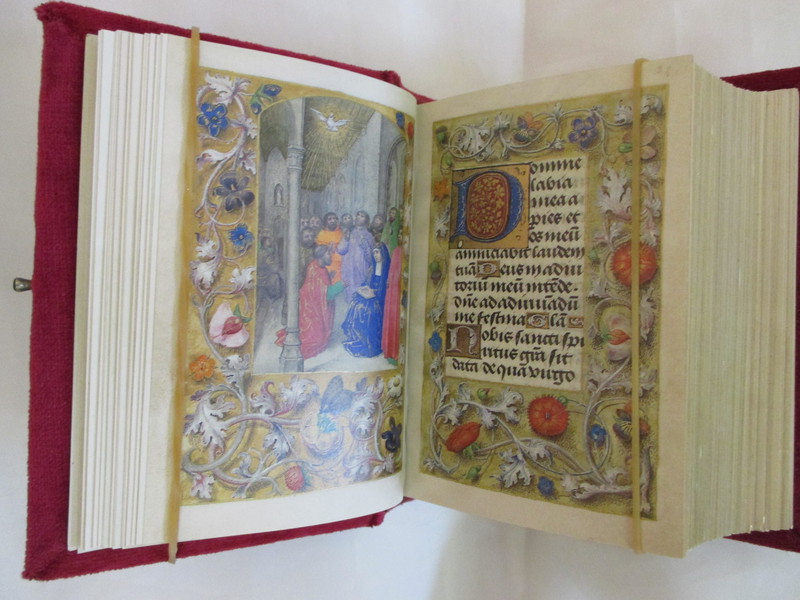 Domine
labia
mea a
pies et
os meũ
annũciabit laudem
tuã Deus in adiu
toriũ meũ intẽde.
dñe ad adiuuãdũ
me festina Glã
Nobis sancti spi
ritus grã sit
data de quã virgo